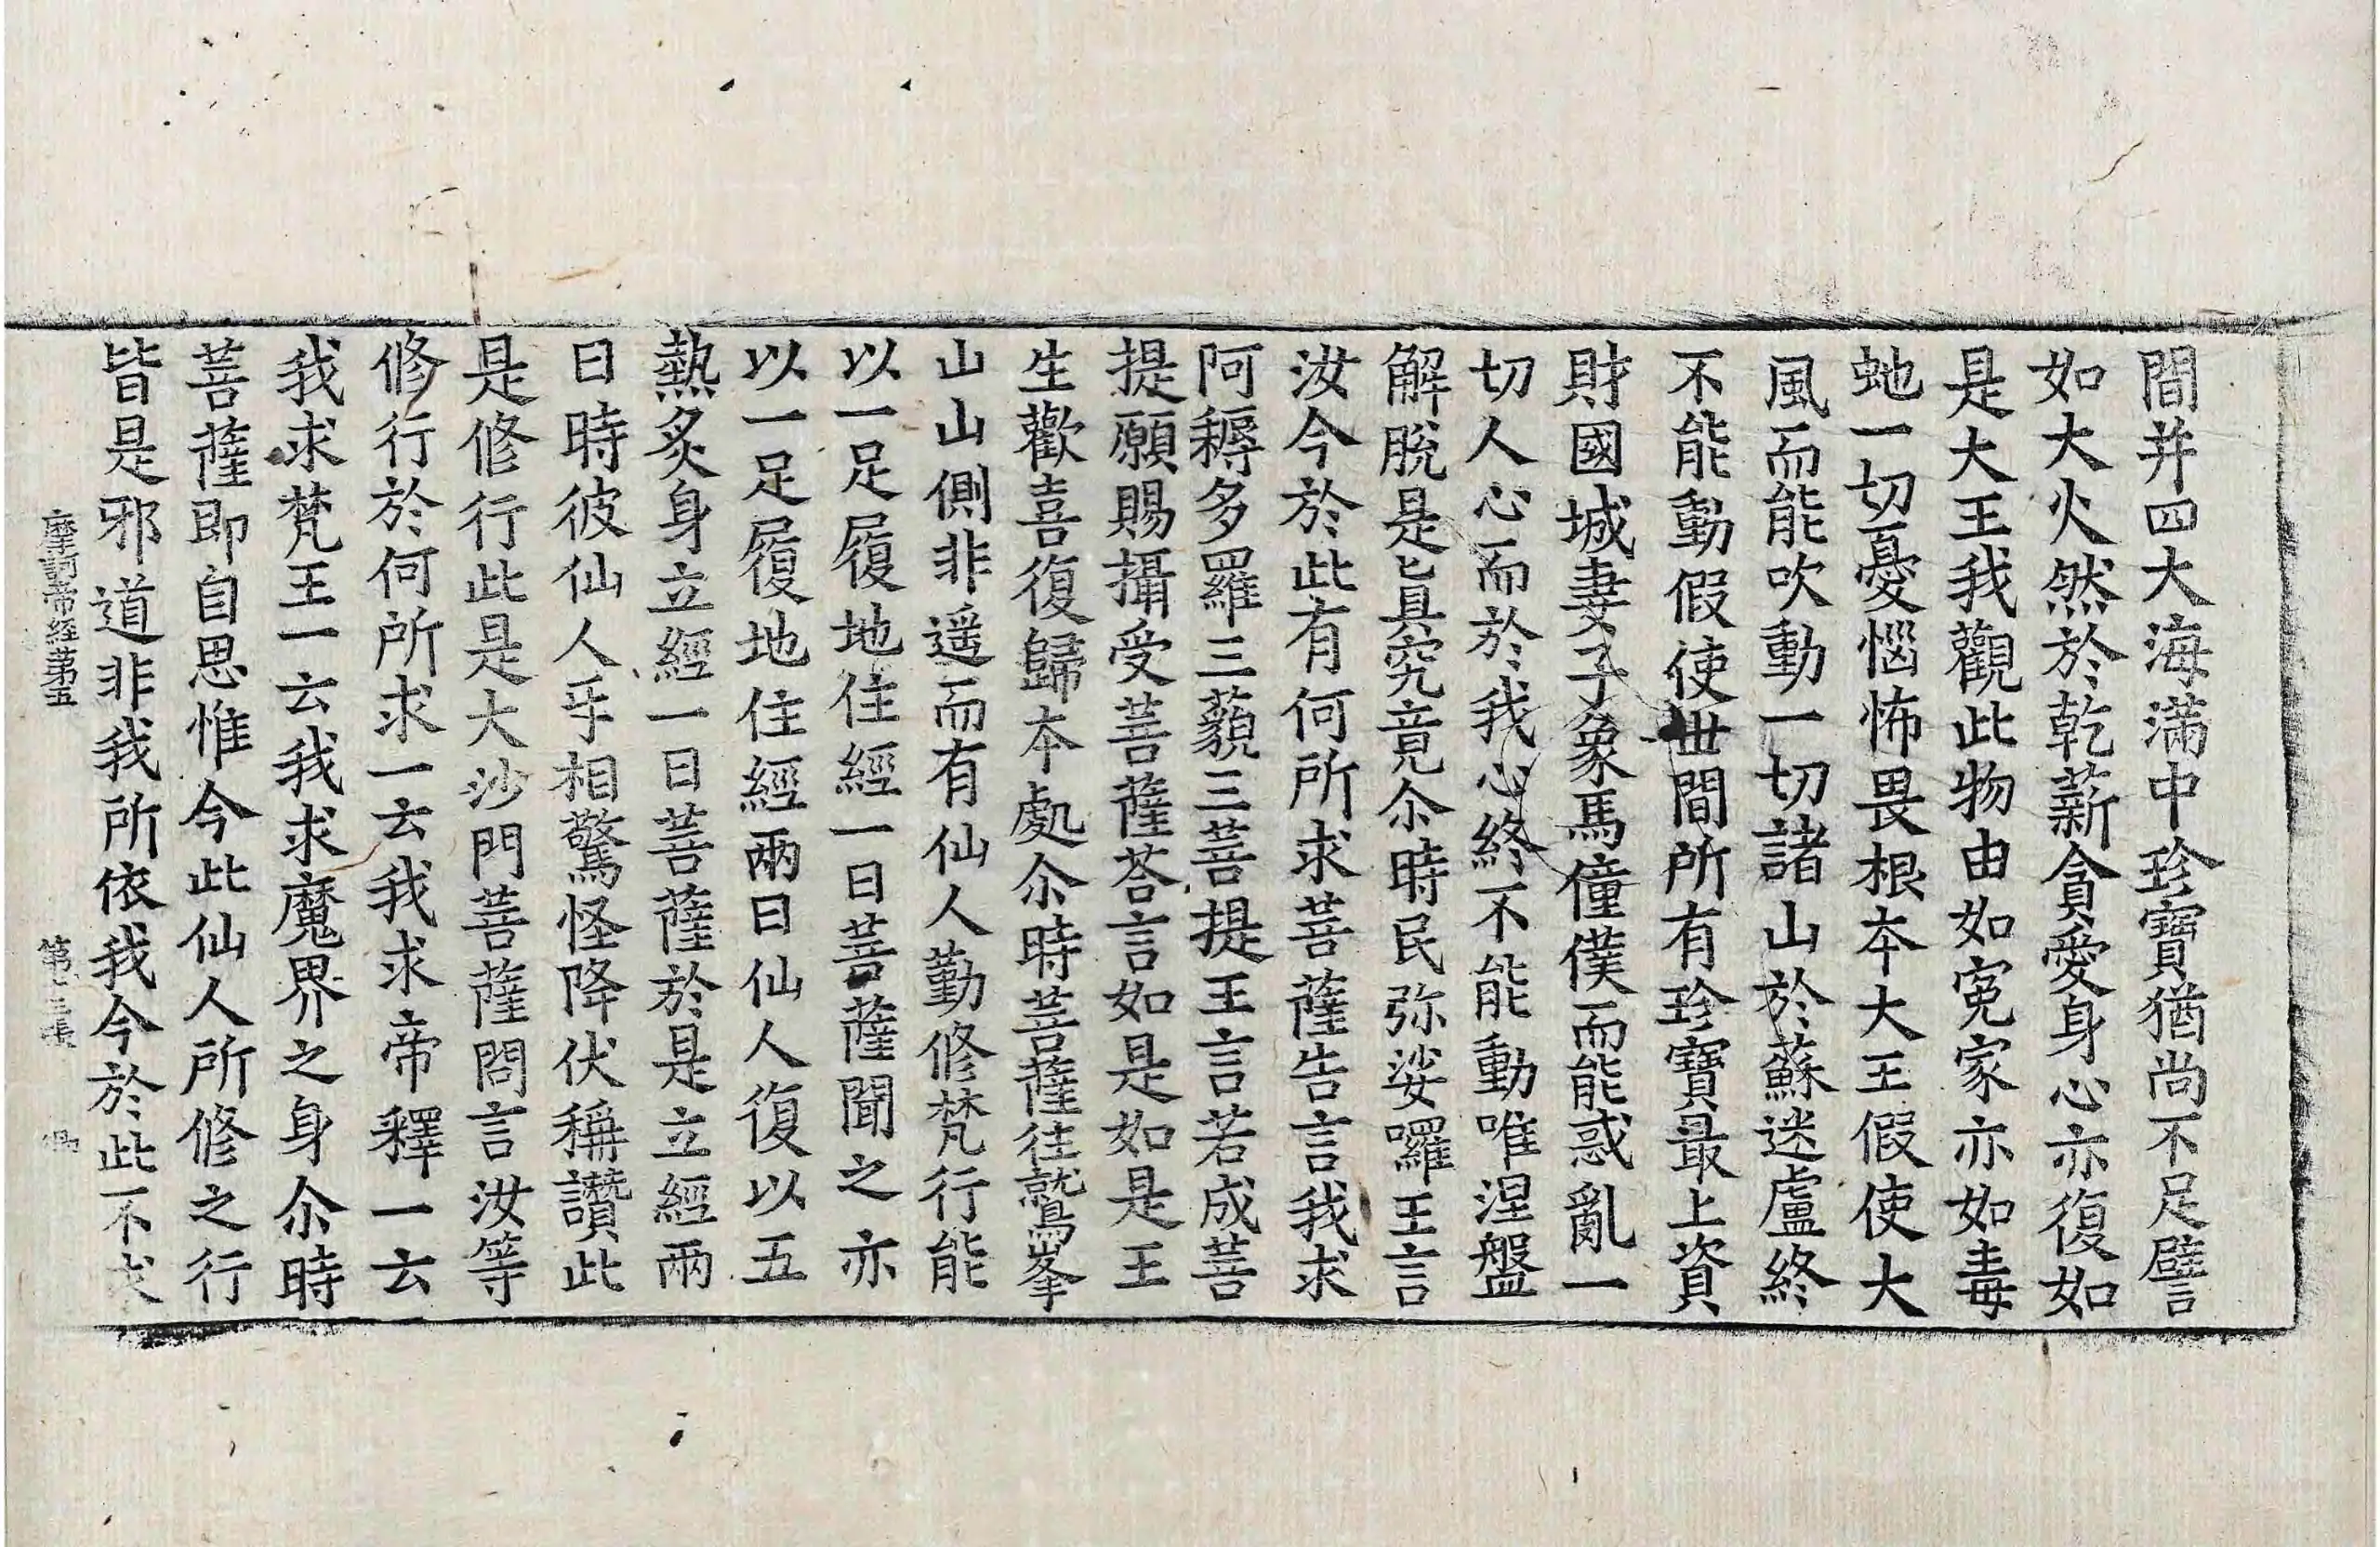 間并四大海滿中珍寶猶尚不足譬
如大火然於乾薪貪愛身心亦復如
是大王我觀此物由如寃家亦如毒
虵一切憂惱怖畏根本大王假使大
風而能吹動一切諸山於蘇迷盧終
不能動假使世間所有珍寶最上資
財國城妻子象馬僮僕而能惑亂一
切人心而於我心終不能動唯涅盤
解脫是眞究竟尒時民弥娑囉王言
汝今於此有何所求菩薩告言我求
阿耨多羅三藐三菩提王言若成菩
提願賜攝受菩薩荅言如是如是王
生歡喜復歸本處尒時菩薩往鷲峯
山山側非遥而有仙人勤修梵行能
以一足履地住經一日菩薩聞之亦
以一足履地住經兩日仙人復以五
熱炙身立經一日菩薩於是立經兩
日時彼仙人㸦相驚怪降伏稱讚此
是修行此是大沙門菩薩問言汝等
修行於何所求一云我求帝釋一云
我求梵王一云我求魔界之身尒時
菩薩即自思惟今此仙人所修之行
皆是邪道非我所依我今於此不求
摩訶帝經第五 第三張